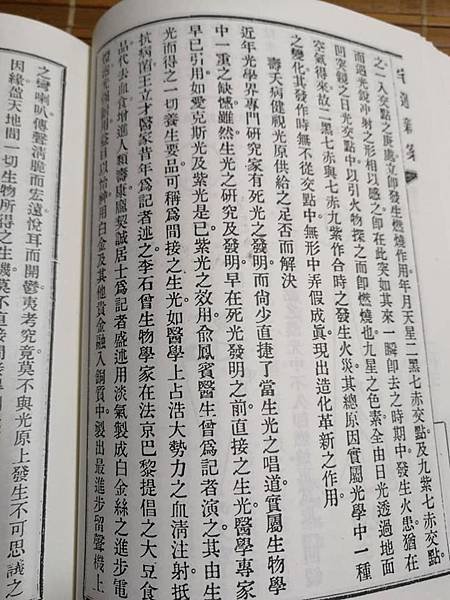 宅運新案
之二入交點之庚處立卽發生燃燒作用年月天星二黑七赤交點及九紫七赤交點。
而過光銳冲射之形相以感之卽在此突如其來一瞬卽去之時期中發生火患猶在
凹突鏡之日光交點中以引火物探之而卽燃燒也九星之色素全由日光透過地面
空氣得來故二黑七赤與七赤九紫作合時之發生火災其總原因實屬光學中一種
之變化其發作時無不從交點中無形中弄假成眞現出造化革新之作用。
壽夭病健視光原供給之足否而解決
近年光學界專門研究家有死光之發明。而尙少直捷了當生光之唱道實屬生物學
中一重之缺憾雖然生光之研究及發明早在死光發明之前直接之生光醫學專家
早已引用如愛克斯光及紫光是已紫光之效用俞鳳賓醫生曾爲記者演之其由生
光而得之一切養生要品可稱爲間接之生光如醫學上占浩大勢力之血淸注射抵
抗病菌王立才醫家昔年爲記者述之李石曾生物學家在法京巴黎提倡之大豆食
品代去血食增進人類壽康盧契誠居士爲記者盛述用淡氣製成白金絲之進步電
用白金及其他貴金融入銅質中。製出最進步留聲機上
之彎喇叭傳聲淸脆而宏遠悅耳而開鬱夷考究竟莫不與光原上發生不可思議之
因緣盈天地間一切生物所得之生機莫不直接間接